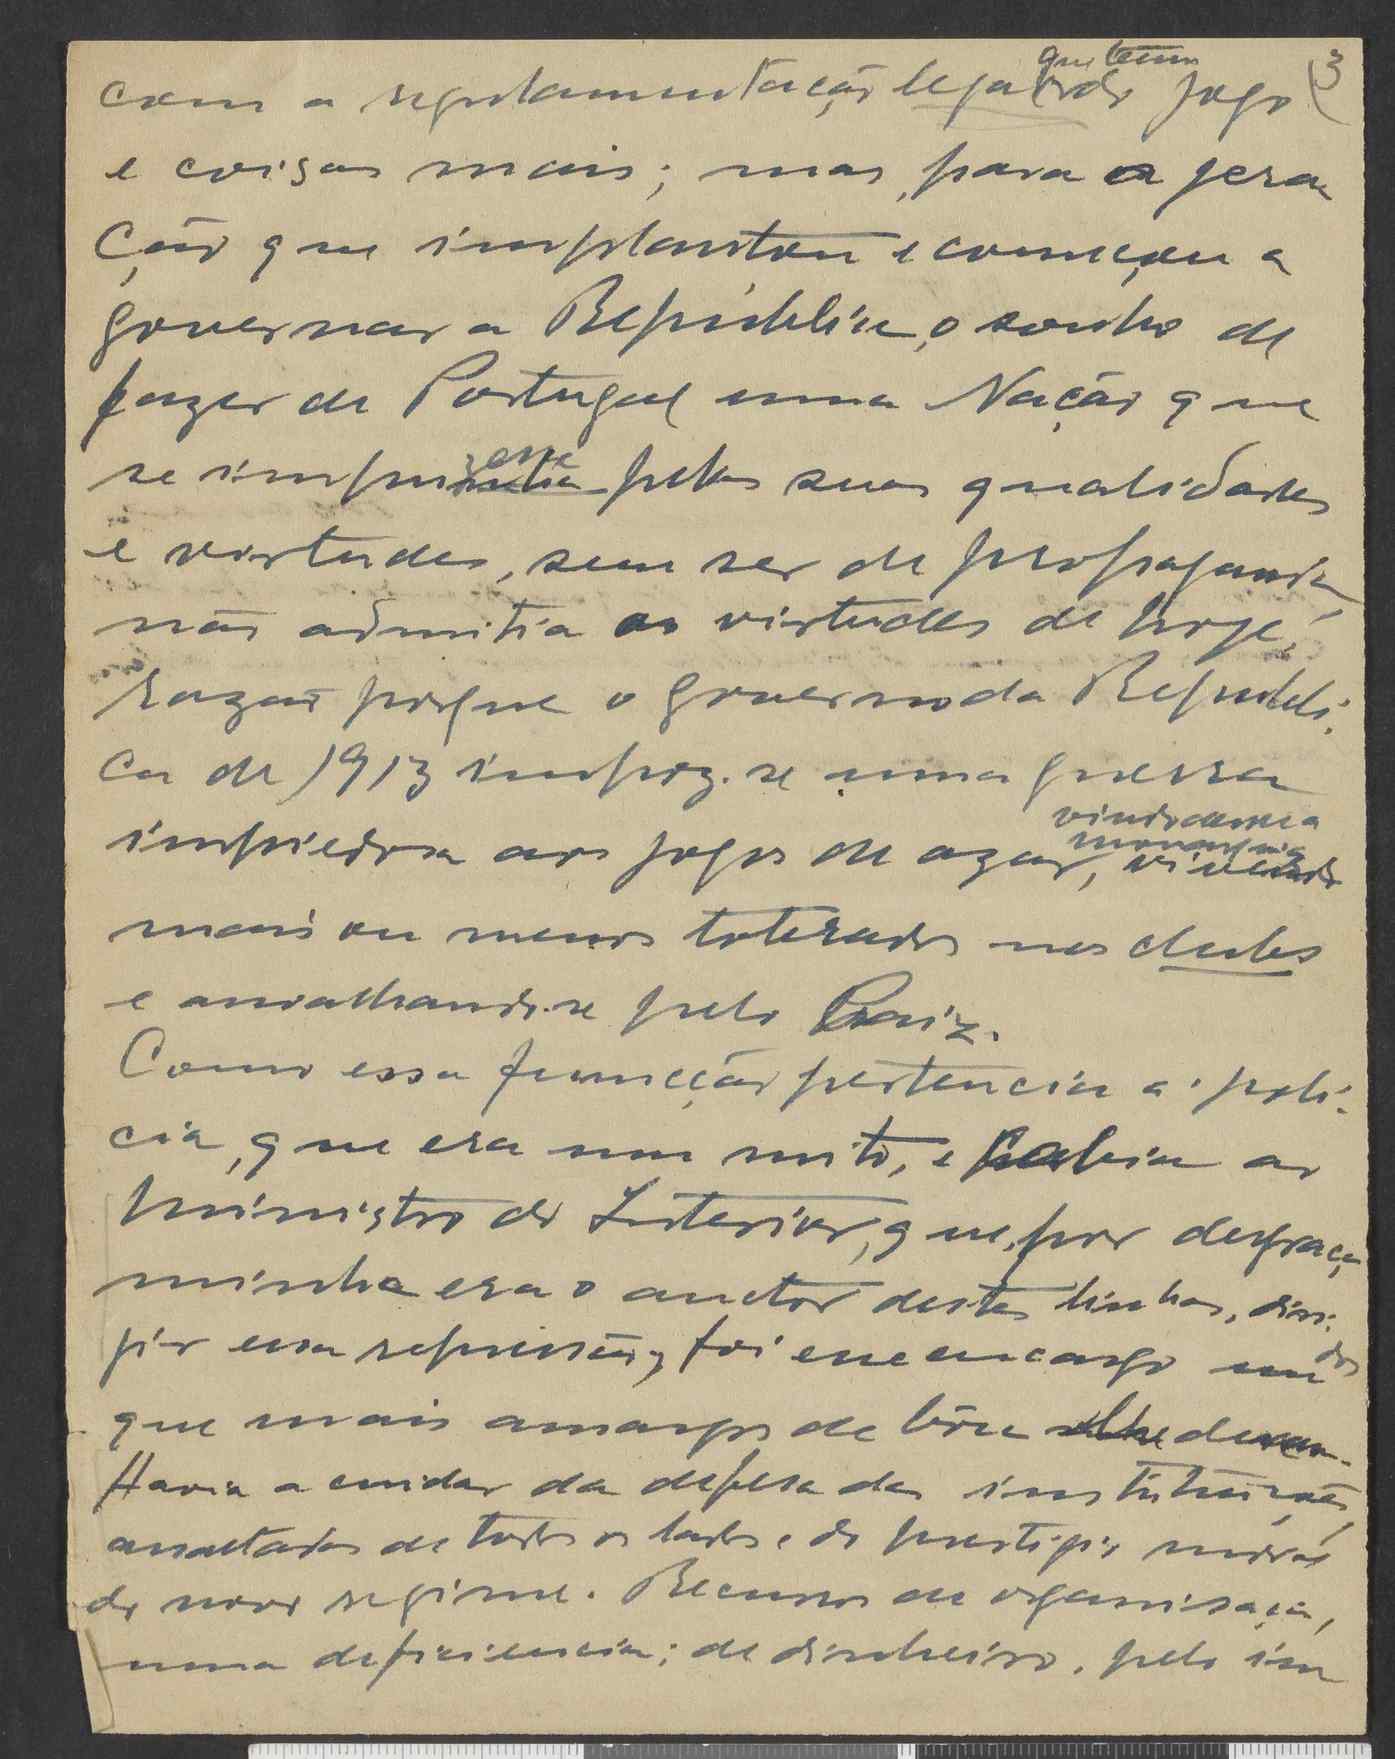 3
que temos
com a regulamentação legal do jogo
e coisas mais; mas, para a gera
ção que implantou e começou a
governar a República, o sonho de
fazer de Portugal uma Nação que
se impuzesse pelas suas qualidades
e virtudes, sem ser de propaganda,
não admitia as virtudes de hoje,
razão porque o governo da Republi-
ca de 1913 impoz-se uma guerra
impiedosa aos jogos de azar, vindo da
monarquia
vivendo
mais ou menos tolerados nos clubs
e amalhando-se pelo Paiz.
Como essa funcção pertencia á poli-
cia, que era um mito, e cabia ao
ministro do Interior, que, por desgraça
minha era o auctor destas linhas, diri-
gir essa repressão, foi esse encargo um dos
que mais amargos de bôca
Havia a cuidar da defesa das instituições,
assaltadas de todos os lados e do prestigio moral
do novo regime. Recursos de organisação,
uma deficiencia; de dinheiro, pelo im